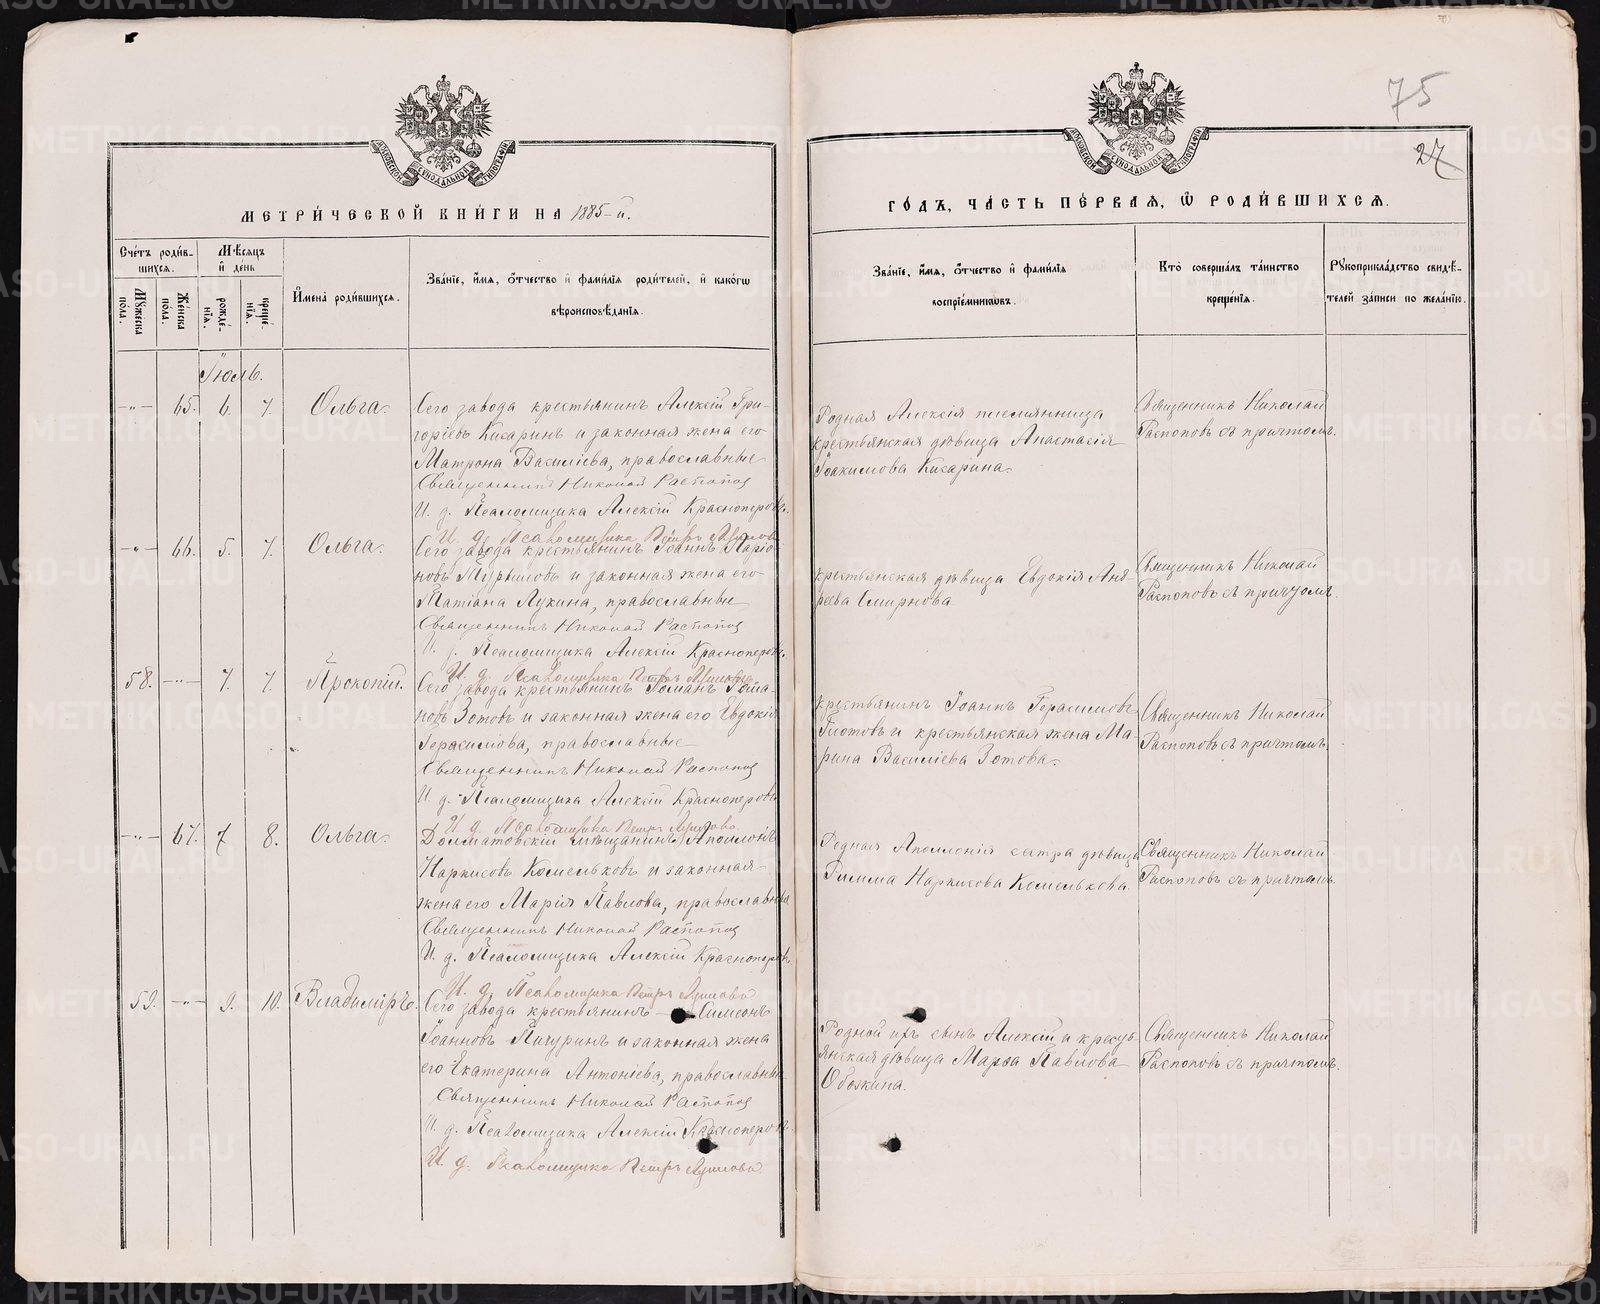 75
27
МЕТРИ́ЧЕСКОЙ КНИ́ГИ НА 1885-й.
ГО́ДЪ, ЧА́СТЬ ПЕ́РВАЯ, Ѿ РОДИ́ВШИХСЯ.
Сче́тъ роди́в-
шихся.
Мꙋжеска
по́ла.
Же́нска
по́ла.
Мѣ́сяцъ
и де́нь
рожде́-
нія.
креще́-
нія.
И҆мена̀ роди́вшихся.
Зва́ніе, и҆́мя, ѻ҆́тчество и҆ фами́лія роди́телей, и҆ како́гѡ
вѣроисповѣ́данія.
Зва́ніе, и҆́мя, ѻ҆́тчество и҆ фами́лія
воспріе́мниковъ.
Кто̀ соверша́лъ та́инство
креще́нія.
Рꙋкоприкла́дство свидѣ́-
телей за́писи по жела́нію.
Іюль.
-"- 65. 6. 7. Ольга.
Сего завода крестьянинъ Алексій Гри-
горіевъ Кисаринъ и законная жена его
Матрона Василіева, православные
Священникъ Николай Распопов
И. д. Псаломщика Алексій Красноперовъ.
И. д. Псаломщика Петръ
Родная Алексія племянница
крестьянская дѣвица Анастасія
Іоакимова Кисарина.
Священникъ Николай
Распоповъ съ причтомъ.
-"- 66. 5. 7. Ольга.
Сего завода крестьянинъ Іоаннъ Ларіо-
новъ и законная жена его
Татіана Лукина, православные
Священникъ Николай Распопов
И. д. Псаломщика Алексій Красноперовъ.
И. д. Псаломщика Петръ
крестьянская дѣвица Евдокія Анд-
реева Смирнова
Священникъ Николай
Распоповъ съ причтомъ.
58. -"- 7. 7. Прокопій.
Сего завода крестьянинъ Романъ Рома-
новъ Зотовъ и законная жена его Евдокія
Герасимова, православные
Священникъ Николай Распопов
И. д. Псаломщика Алексій Красноперовъ
И. д. Псаломщика Петръ
крестьянинъ Іоаннъ Герасимовъ
и крестьянская жена Ма-
рина Василіева Зотова.
Священникъ Николай
Распоповъ съ причтомъ.
-"- 67. 7 8. Ольга.
Долматовскій мѣщанинъ Аполлонъ
Наркисовъ Комельковъ и законная
жена его Марія Павлова, православные
Священникъ Николай Распопов
И. д. Псаломщика Алексій Красноперовъ.
И. д. Псаломщика Петръ
Родная Аполлонія сестра дѣвица
Римма Наркисова Комелькова.
Священникъ Николай
Распоповъ съ причтомъ.
59. -"- 9. 10. Владиміръ.
Сего завода крестьянинъ Симеонъ
Іоанновъ Пичуринъ и законная жена
его Екатерина Антоніева, православные
Священникъ Николай Распопов
И. д. Псаломщика Алексій Красноперовъ.
И. д. Псаломщика Петръ
Родной ихъ сынъ Алексій и кресть-
янская дѣвица Марѳа Павлова
Обоскина.
Священникъ Николай
Распоповъ съ причтомъ.